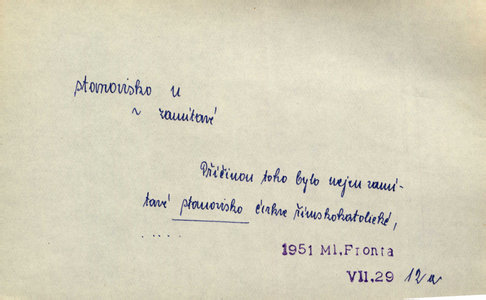 stanovisko n
~ zamítavé
Příčinou toho bylo nejen zamí-
tavé stanovisko církve římskokatolické,
.....
1951 Ml.Fronta
VII.29 12a